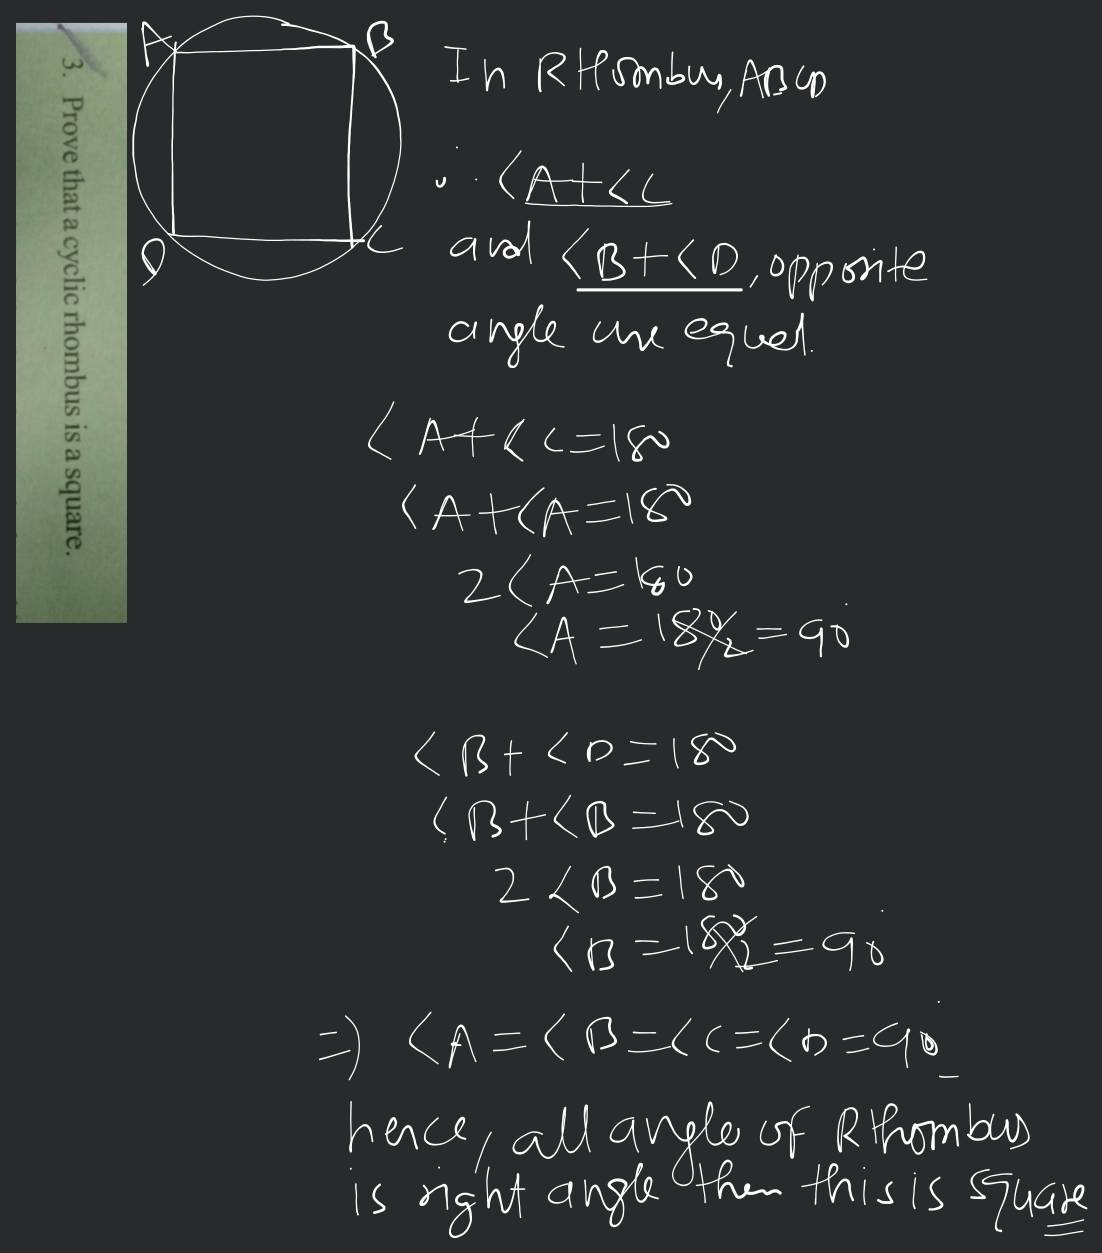 3. Prove that a cyclic rhombus is a square.
A B
D C
In RHombus, ABCD
∴ <A+<C
and <B+<D, opposite
angle are equal.
<A+<C=180
<A+<A=180
2<A=180
<A=180/2=90°
<B+<D=180
<B+<B=180
2<B=180
<B=180/2=90°
=) <A=<B=<C=<D=90°
hence, all angle of Rthombus
is right angle then this is square